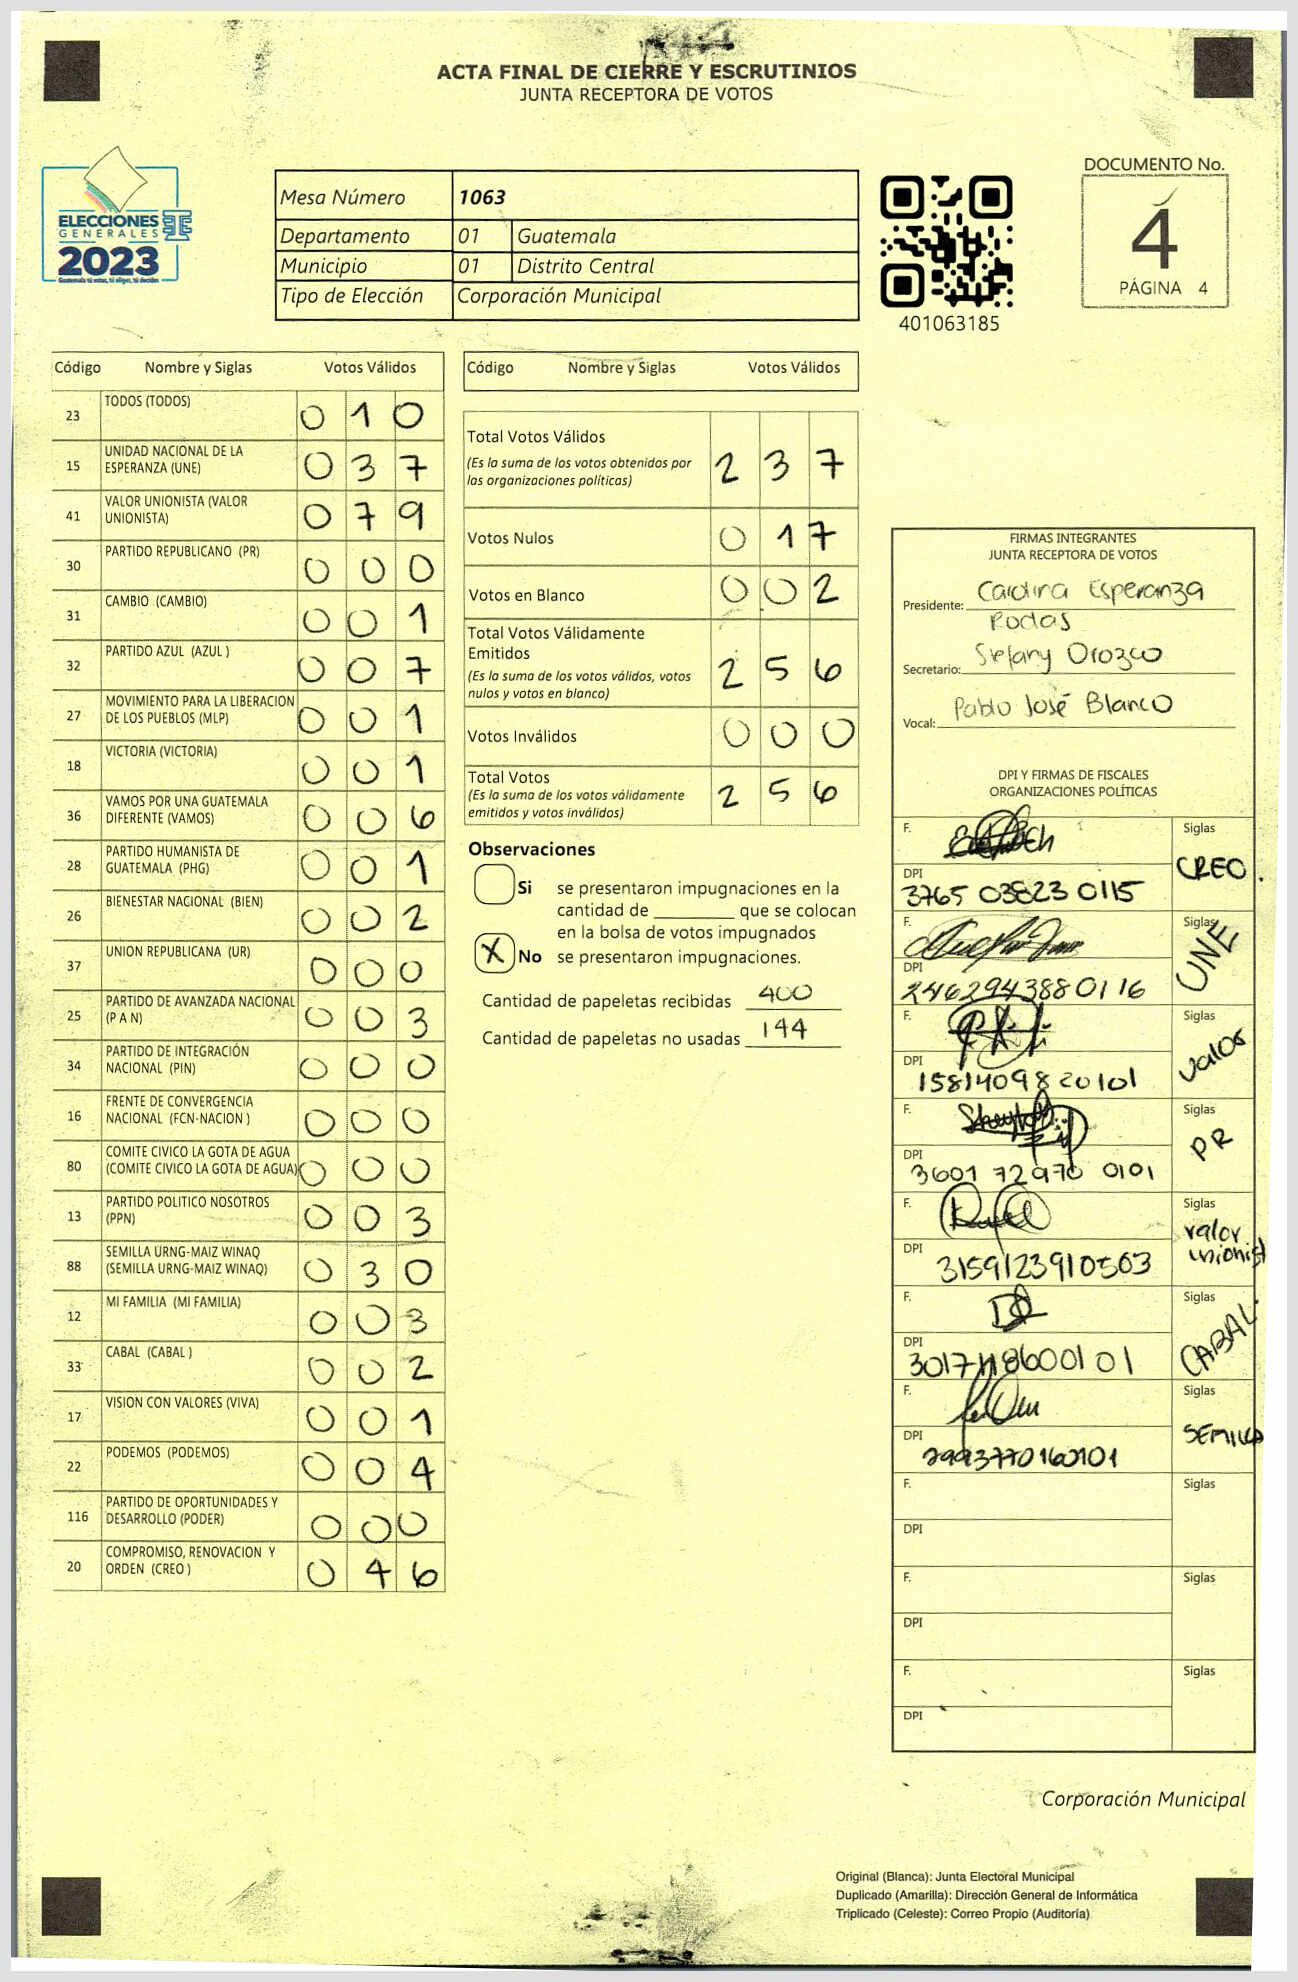 ACTA FINAL DE CIERRE Y ESCRUTINIOS
JUNTA RECEPTORA DE VOTOS
ELECCIONES
GENERALES
2023
Mesa Número 1063
Departamento 01 Guatemala
Municipio 01 Distrito Central
Tipo de Elección Corporación Municipal
401063185
DOCUMENTO No.
4
PÁGINA 4
Código Nombre y Siglas Votos Válidos
23 TODOS (TODOS) 0 1 0
15 UNIDAD NACIONAL DE LA
ESPERANZA (UNE) 0 3 7
41 VALOR UNIONISTA (VALOR
UNIONISTA) 0 7 9
30 PARTIDO REPUBLICANO (PR) 0 0 0
31 CAMBIO (CAMBIO) 0 0 1
32 PARTIDO AZUL (AZUL ) 0 0 7
27 MOVIMIENTO PARA LA LIBERACION
DE LOS PUEBLOS (MLP) 0 0 1
18 VICTORIA (VICTORIA) 0 0 1
36 VAMOS POR UNA GUATEMALA
DIFERENTE (VAMOS) 0 0 6
28 PARTIDO HUMANISTA DE
GUATEMALA (PHG) 0 0 1
26 BIENESTAR NACIONAL (BIEN) 0 0 2
37 UNION REPUBLICANA (UR) 0 0 0
25 PARTIDO DE AVANZADA NACIONAL
(P A N) 0 0 3
34 PARTIDO DE INTEGRACIÓN
NACIONAL (PIN) 0 0 0
16 FRENTE DE CONVERGENCIA
NACIONAL (FCN-NACION ) 0 0 0
80 COMITE CIVICO LA GOTA DE AGUA
(COMITE CIVICO LA GOTA DE AGUA) 0 0 0
13 PARTIDO POLITICO NOSOTROS
(PPN) 0 0 3
88 SEMILLA URNG-MAIZ WINAQ
(SEMILLA URNG-MAIZ WINAQ) 0 3 0
12 MI FAMILIA (MI FAMILIA) 0 0 3
33 CABAL (CABAL ) 0 0 2
17 VISION CON VALORES (VIVA) 0 0 1
22 PODEMOS (PODEMOS) 0 0 4
116 PARTIDO DE OPORTUNIDADES Y
DESARROLLO (PODER) 0 0 0
20 COMPROMISO, RENOVACION Y
ORDEN (CREO ) 0 4 6
Código Nombre y Siglas Votos Válidos
Total Votos Válidos
(Es la suma de los votos obtenidos por
las organizaciones políticas) 2 3 7
Votos Nulos 0 1 7
Votos en Blanco 0 0 2
Total Votos Válidamente
Emitidos
(Es la suma de los votos válidos, votos
nulos y votos en blanco) 2 5 6
Votos Inválidos 0 0 0
Total Votos
(Es la suma de los votos válidamente
emitidos y votos inválidos) 2 5 6
Observaciones
Si se presentaron impugnaciones en la
cantidad de ________ que se colocan
en la bolsa de votos impugnados
X No se presentaron impugnaciones.
Cantidad de papeletas recibidas 400
Cantidad de papeletas no usadas 144
FIRMAS INTEGRANTES
JUNTA RECEPTORA DE VOTOS
Presidente: Carolina Esperanza
Rodas
Secretario: Stefany Orozco
Vocal: Pablo José Blanco
DPI Y FIRMAS DE FISCALES
ORGANIZACIONES POLÍTICAS
F. Siglas
CREO.
DPI
3765 03823 0115
F. Siglas
UNE
DPI
2462943880116
F. Siglas
Valor
DPI
1581409820101
F. Siglas
PR
DPI
3601 72970 0101
F. Siglas
valor
unionist
DPI
3159123910503
F. Siglas
CABAL.
DPI
F. Siglas
SEMILLA
DPI
2993770160101
F. Siglas
DPI
F. Siglas
DPI
F. Siglas
DPI
Corporación Municipal
Original (Blanca): Junta Electoral Municipal
Duplicado (Amarilla): Dirección General de Informática
Triplicado (Celeste): Correo Propio (Auditoría)